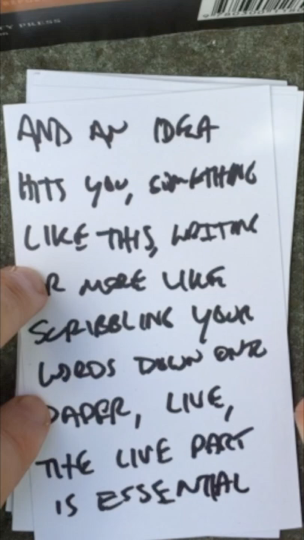 EY PRESS
AND AN IDEA
HITS YOU, SOMETHING
LIKE THIS, WRITING
R MORE LIKE
SCRIBBLING YOUR
WORDS DOWN ONTO
PAPER, LIVE,
THE LIVE PART
IS ESSENTIAL